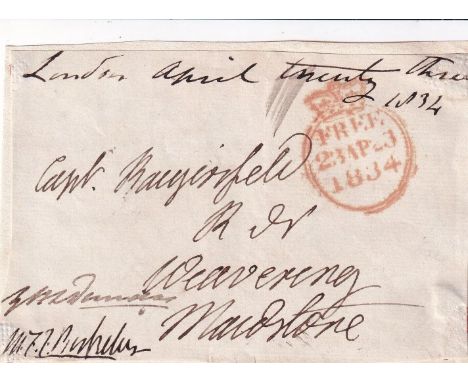 London April twenty three
1834
FREE
23 AP 23
1834
Capt.
R N
Weavering
Maidstone